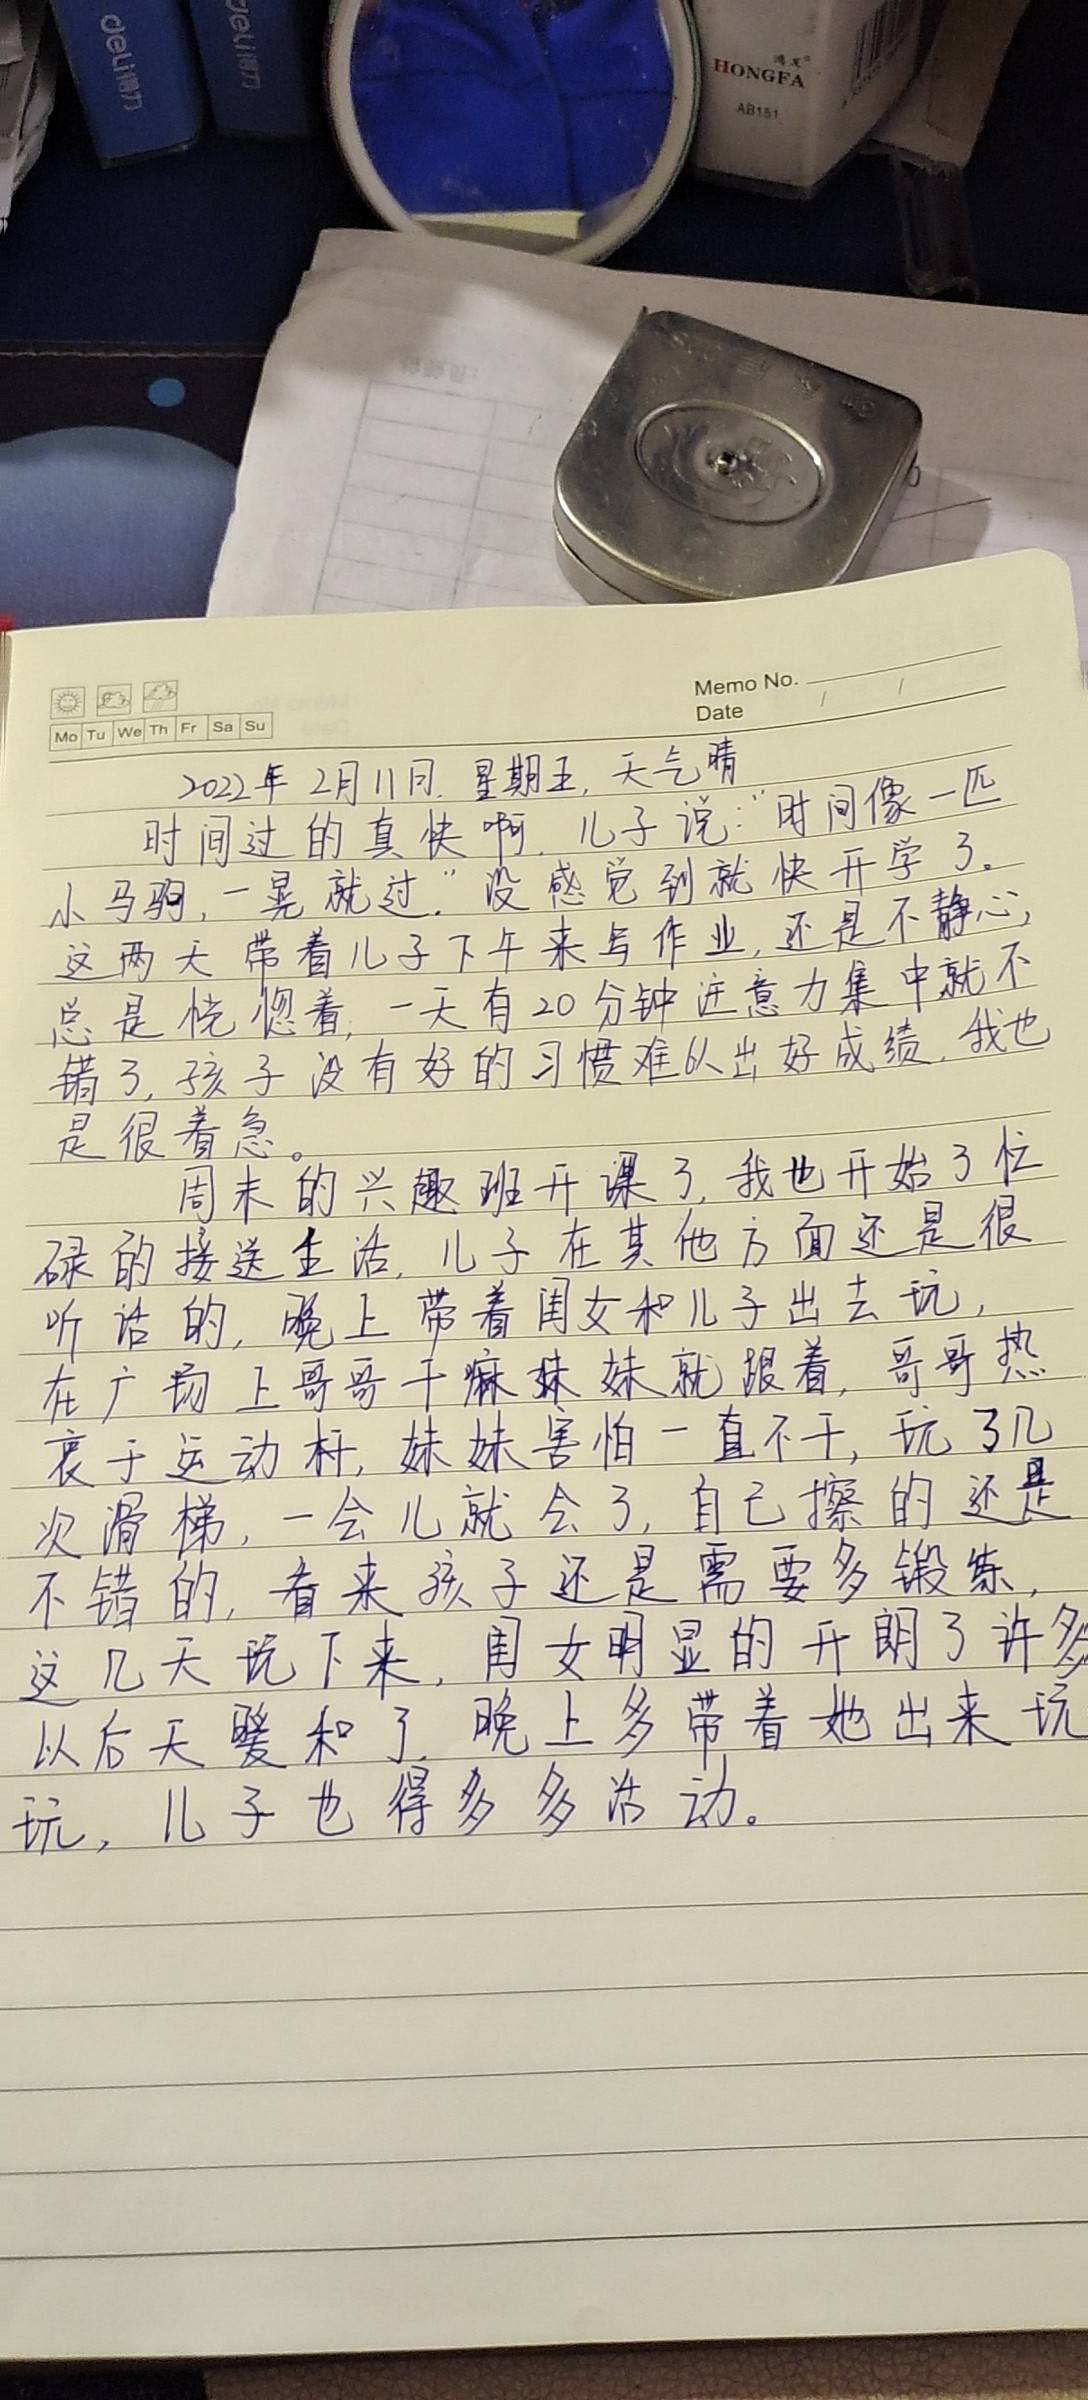 deli得力
deli得力
HONGFA
AB151
Memo No.
Date / /
Mo Tu We Th Fr Sa Su
2022年2月11日. 星期五, 天气晴
时间过的真快啊. 儿子说:“时间像一匹
小马驹, 一晃就过.”没感觉到就快开学了。
这两天带着儿子下午来写作业, 还是不静心,
总是恍惚着, 一天有20分钟注意力集中就不
错了, 孩子没有好的习惯难以出好成绩. 我也
是很着急。
周末的兴趣班开课了, 我也开始了忙
碌的接送生活, 儿子在其他方面还是很
听话的, 晚上带着闺女和儿子出去玩,
在广场上哥哥干嘛妹妹就跟着, 哥哥热
衷于运动杆, 妹妹害怕一直不干, 玩了几
次滑梯, 一会儿就会了, 自己擦的还是
不错的, 看来孩子还是需要多锻炼,
这几天玩下来, 闺女明显的开朗了许多
以后天暖和了, 晚上多带着她出来玩
玩, 儿子也得多多活动。